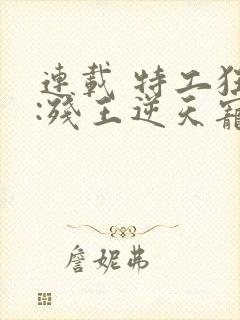 連載 特工狂
:殘王逆天寵
詹妮弗